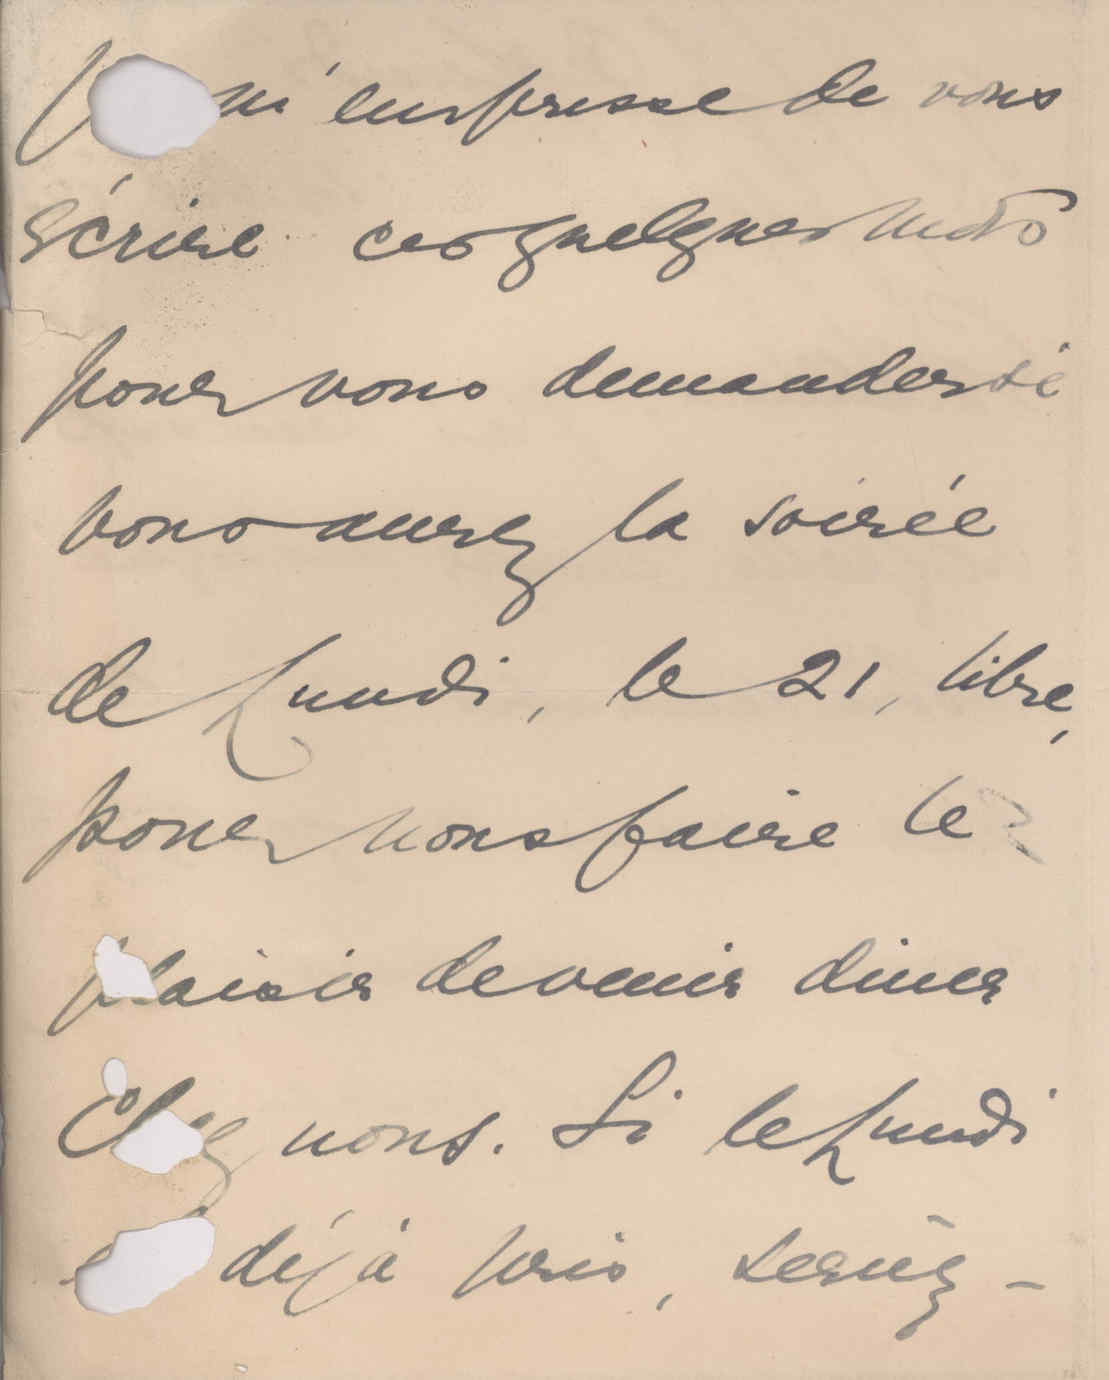 J m'empresse de vous
écrire ces quelques mots
pour vous demander si
vous aurez la soirée
de Lundi, le 21, libre,
pour nous faire le
plaisir de venir diner
Chez nous. Si le Lundi
déjà pris, seriez-